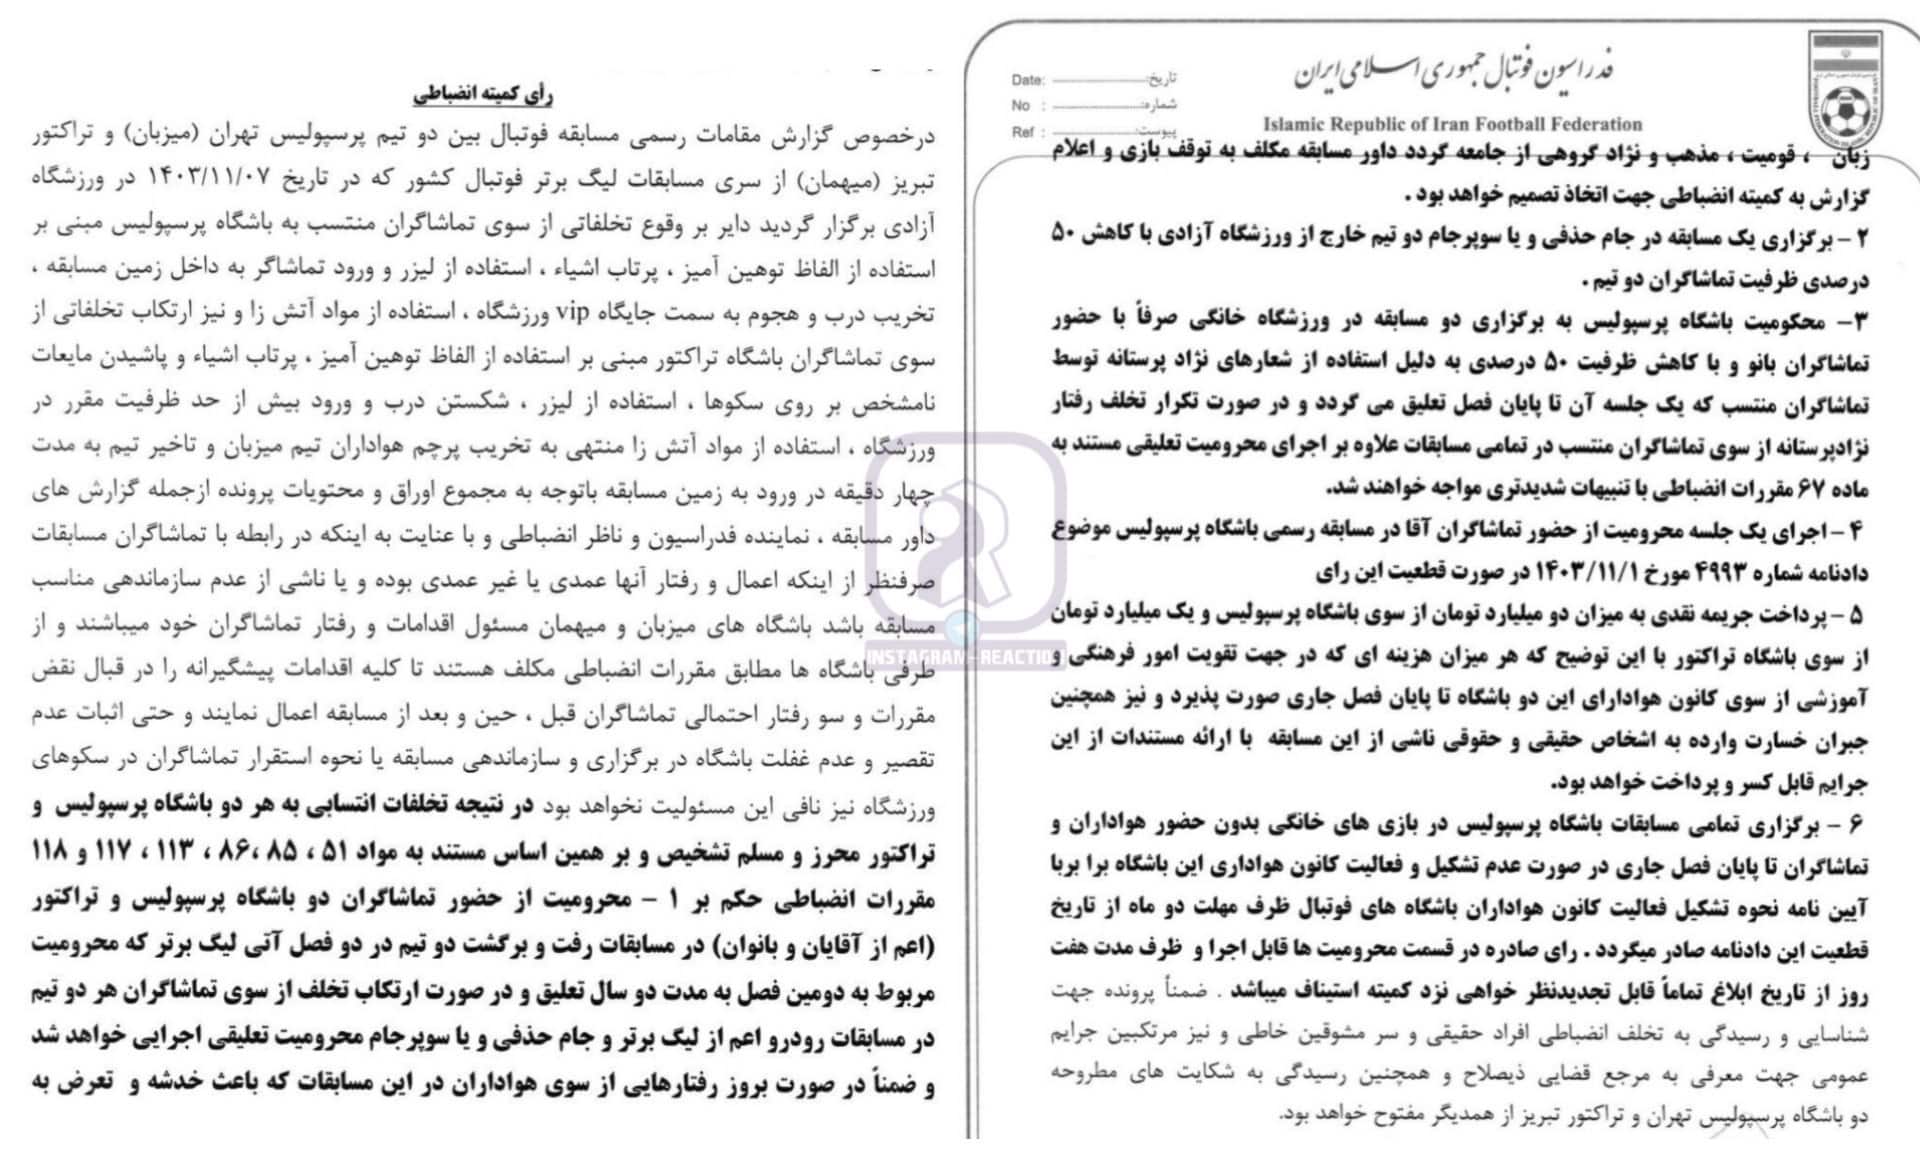 رأی کمیته انضباطی
درخصوص گزارش مقامات رسمی مسابقه فوتبال بین دو تیم پرسپولیس تهران (میزبان) و تراکتور
تبریز (میهمان) از سری مسابقات لیگ برتر فوتبال کشور که در تاریخ ۱۴۰۳/۱۱/۰۷ در ورزشگاه
آزادی برگزار گردید دایر بر وقوع تخلفاتی از سوی تماشاگران منتسب به باشگاه پرسپولیس مبنی بر
استفاده از الفاظ توهین آمیز ، پرتاب اشیاء ، استفاده از لیزر و ورود تماشاگر به داخل زمین مسابقه ،
تخریب درب و هجوم به سمت جایگاه vip ورزشگاه ، استفاده از مواد آتش زا و نیز ارتکاب تخلفاتی از
سوی تماشاگران باشگاه تراکتور مبنی بر استفاده از الفاظ توهین آمیز ، پرتاب اشیاء و پاشیدن مایعات
نامشخص بر روی سکوها ، استفاده از لیزر ، شکستن درب و ورود بیش از حد ظرفیت مقرر در
ورزشگاه ، استفاده از مواد آتش زا منتهی به تخریب پرچم هواداران تیم میزبان و تاخیر تیم به مدت
چهار دقیقه در ورود به زمین مسابقه باتوجه به مجموع اوراق و محتویات پرونده ازجمله گزارش های
داور مسابقه ، نماینده فدراسیون و ناظر انضباطی و با عنایت به اینکه در رابطه با تماشاگران مسابقات
صرفنظر از اینکه اعمال و رفتار آنها عمدی یا غیر عمدی بوده و یا ناشی از عدم سازماندهی مناسب
مسابقه باشد باشگاه های میزبان و میهمان مسئول اقدامات و رفتار تماشاگران خود میباشند و از
طرفی باشگاه ها مطابق مقررات انضباطی مکلف هستند تا کلیه اقدامات پیشگیرانه را در قبال نقض
مقررات و سو رفتار احتمالی تماشاگران قبل ، حین و بعد از مسابقه اعمال نمایند و حتی اثبات عدم
تقصیر و عدم غفلت باشگاه در برگزاری و سازماندهی مسابقه یا نحوه استقرار تماشاگران در سکوهای
ورزشگاه نیز نافی این مسئولیت نخواهد بود در نتیجه تخلفات انتسابی به هر دو باشگاه پرسپولیس و
تراکتور محرز و مسلم تشخیص و بر همین اساس مستند به مواد ۵۱ ، ۸۵ ،۸۶ ، ۱۱۳ ، ۱۱۷ و ۱۱۸
مقررات انضباطی حکم بر ۱ – محرومیت از حضور تماشاگران دو باشگاه پرسپولیس و تراکتور
(اعم از آقایان و بانوان) در مسابقات رفت و برگشت دو تیم در دو فصل آتی لیگ برتر که محرومیت
مربوط به دومین فصل به مدت دو سال تعلیق و در صورت ارتکاب تخلف از سوی تماشاگران هر دو تیم
در مسابقات رودرو اعم از لیگ برتر و جام حذفی و یا سوپرجام محرومیت تعلیقی اجرایی خواهد شد
و ضمناً در صورت بروز رفتارهایی از سوی هواداران در این مسابقات که باعث خدشه و تعرض به
فدراسیون فوتبال جمهوری اسلامی ایران
Islamic Republic of Iran Football Federation
Date: تاریخ:
No : شماره:
Ref : پیوست:
زبان ، قومیت ، مذهب و نژاد گروهی از جامعه گردد داور مسابقه مکلف به توقف بازی و اعلام
گزارش به کمیته انضباطی جهت اتخاذ تصمیم خواهد بود .
۲ – برگزاری یک مسابقه در جام حذفی و یا سوپرجام دو تیم خارج از ورزشگاه آزادی با کاهش ۵۰
درصدی ظرفیت تماشاگران دو تیم .
۳– محکومیت باشگاه پرسپولیس به برگزاری دو مسابقه در ورزشگاه خانگی صرفاً با حضور
تماشاگران بانو و با کاهش ظرفیت ۵۰ درصدی به دلیل استفاده از شعارهای نژاد پرستانه توسط
تماشاگران منتسب که یک جلسه آن تا پایان فصل تعلیق می گردد و در صورت تکرار تخلف رفتار
نژادپرستانه از سوی تماشاگران منتسب در تمامی مسابقات علاوه بر اجرای محرومیت تعلیقی مستند به
ماده ۶۷ مقررات انضباطی با تنبیهات شدیدتری مواجه خواهند شد.
۴ – اجرای یک جلسه محرومیت از حضور تماشاگران آقا در مسابقه رسمی باشگاه پرسپولیس موضوع
دادنامه شماره ۴۹۹۳ مورخ ۱۴۰۳/۱۱/۱ در صورت قطعیت این رای
۵ – پرداخت جریمه نقدی به میزان دو میلیارد تومان از سوی باشگاه پرسپولیس و یک میلیارد تومان
از سوی باشگاه تراکتور با این توضیح که هر میزان هزینه ای که در جهت تقویت امور فرهنگی و
آموزشی از سوی کانون هوادارای این دو باشگاه تا پایان فصل جاری صورت پذیرد و نیز همچنین
جبران خسارت وارده به اشخاص حقیقی و حقوقی ناشی از این مسابقه با ارائه مستندات از این
جرایم قابل کسر و پرداخت خواهد بود.
۶ – برگزاری تمامی مسابقات باشگاه پرسپولیس در بازی های خانگی بدون حضور هواداران و
تماشاگران تا پایان فصل جاری در صورت عدم تشکیل و فعالیت کانون هواداری این باشگاه برا بربا
آیین نامه نحوه تشکیل فعالیت کانون هواداران باشگاه های فوتبال ظرف مهلت دو ماه از تاریخ
قطعیت این دادنامه صادر میگردد . رای صادره در قسمت محرومیت ها قابل اجرا و ظرف مدت هفت
روز از تاریخ ابلاغ تماماً قابل تجدیدنظر خواهی نزد کمیته استیناف میباشد . ضمناً پرونده جهت
شناسایی و رسیدگی به تخلف انضباطی افراد حقیقی و سر مشوقین خاطی و نیز مرتکبین جرایم
عمومی جهت معرفی به مرجع قضایی ذیصلاح و همچنین رسیدگی به شکایت های مطروحه
دو باشگاه پرسپولیس تهران و تراکتور تبریز از همدیگر مفتوح خواهد بود.
INSTAGRAM-REACTION